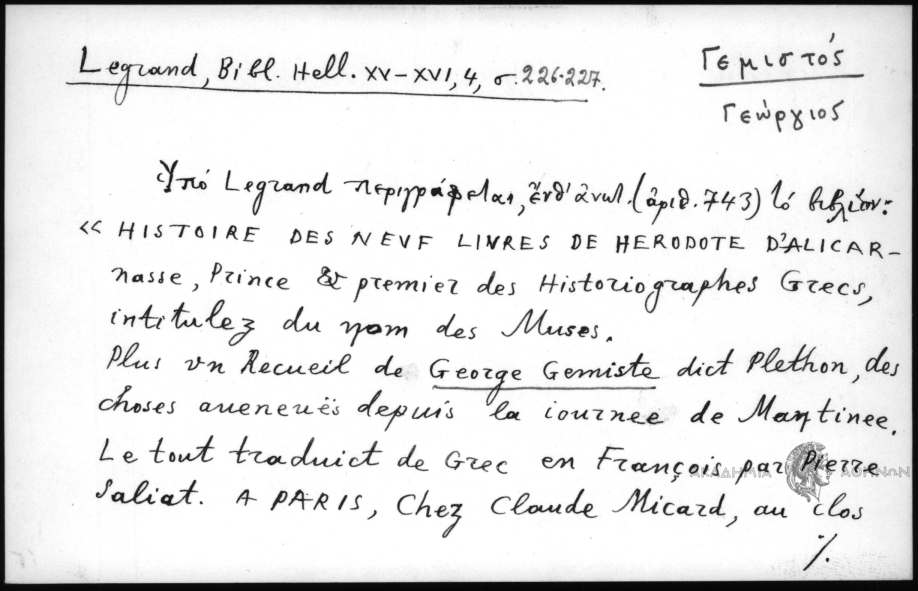 Legrand, Bibl. Hell. XV–XVI, 4, σ. 226-227.
Γεμιστός
Γεώργιος
Ὑπό Legrand περιγράφεται, ἔνθ' ἀνωτ. (ἀριθ. 743) τό βιβλίον:
« HISTOIRE DES NEVF LIVRES DE HERODOTE D'ALICAR–
nasse, Prince & premier des Historiographes Grecs,
intitulez du nom des Muses.
Plus vn Recueil de George Gemiste dict Plethon, des
choses aueneuës depuis la iournee de Mantinee.
Le tout traduict de Grec en François par Pierre
Saliat. A PARIS, Chez Claude Micard, au clos
ΑΚΑΔΗΜΙΑ ΑΘΗΝΩΝ
./.